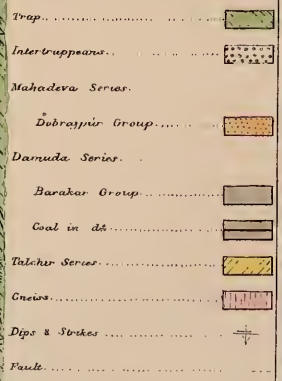 Trap
Intertrappeans
Mahadeva Series.
Dubrajpúr Group
Damuda Series.
Barakar Group
Coal in do.
Talchir Series
Gneiss
Dips & Strikes
Fault